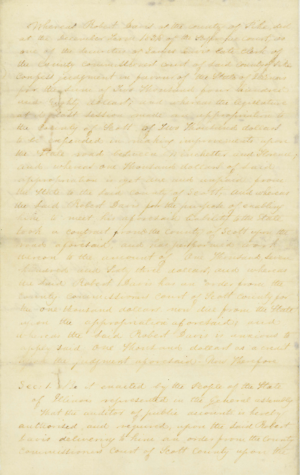 Whereas Robert Davis of the county of
at the December Term of the Supreme court, as
one of the securities of James late clerk of
the County commissioners court of said county did
confess judgment in favour of the State of Illinois
for the sum of Two Thousand hundred
and Eighty dollars; and whereas the legislature
at special session made an appropriation to
the county of Scott of Two Thousand dollars
to be expended in making improvements upon
the State road between Winchester and
and whereas One thousand dollars of said
appropriation is yet due and owing from
the State to the said county of Scott And whereas
the said Robert Davis for the purpose of enabling
him to meet his liability to the State
took a contract from the county of Scott upon the
road aforesaid and has performed work
thereon to the amount of One thousand
hundred and Sixty five dollars, and whereas
the said Robert Davis has an order from the
county commissioners court of Scott county for
the one thousand dollars now due from the State
upon the appropriation aforesaid; and
whereas the said Robert Davis is
said One thousand dollars
the judgment aforesaid Now Therefore
Sec. 1. Be it enacted by the People of the State
of Illinois represented in the General Assembly
That the auditor of public accounts is hereby
authorized and required, upon the said Robert
Davis delivering to him an order from the County
Commissioners Court of Scott County upon the